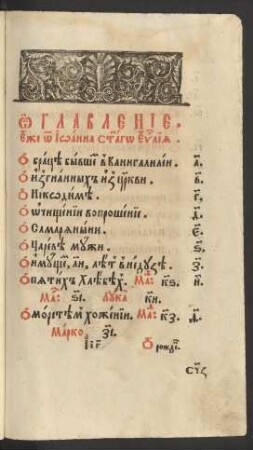 Ѡ҃ГЛАВЛЕНІЕ.
Е҆́же ѿ І҆ѡа́нна ст҃а́гѡ є҆ѵⷢ҇лїѧ.
Ѡ҆ бра́цѣ бы́вшїй в̾ кани́ галиле́и. а҃.
Ѡ҆ и҆з̾гна́нныхъ и҆з̾ цр҃кви. в҃.
Ѡ҆ Нїкоди́мѣ. г҃.
Ѡ҆ ѡ҆чище́нїи вопроше́нїе. д҃.
Ѡ҆ Самарѧны́ни. є҃.
Ѡ҆ Царе́вѣ мꙋ́жи. ѕ҃.
Ѡ҆ и҆мꙋ́щїй, л҃и, лѣ́т в̾ недꙋ́зѣ. з҃.
Ѡ҆ пѧти́хъ хлѣ́бѣхъ. Маⷴ҇: кѕ҃. и҃.
Маⷬ҇: ѕ҃і. Лꙋка̀ ки҃.
Ѡ҆ морстѣ́м хожде́нїи. Маⷴ҇: кз҃. ѳ҃.
Ма́рко з҃і.
і҃і Ѡ҆ рожⷣ